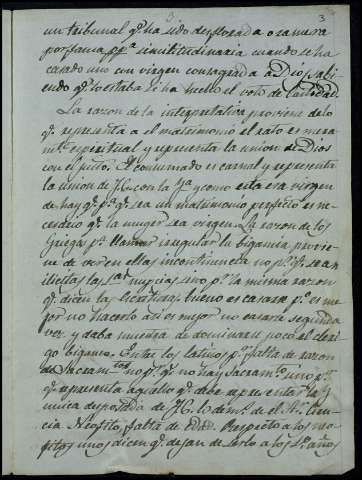 3
un tribunal q.e ha sido desflorada o ramera
por fama pp.ca similitudinaria cuando se ha
casado uno con virgen consagrada a Dios sabi
endo q.e lo estaba si ha hecho el voto de castidad
La razon de la interpretativa proviene de lo
q.e representa a el matrimonio el rato es mera
m.te espiritual y representa la union de Dios
con el justo. El consumado es carnal y representa
la union de J.C. con la Ig.a y como esta era virgen
de hay q.e p.a q.e sea un matrimonio perfecto es ne
cesario q.e la muger sea virgen. La razon de los
Griegos p.a llamar irregular la bigamia provie
ne de ver en ellas incontinencia no p.r q.e sean
ilicitas las s.das nupcias sino p.r la misma razon
q.e dicen las Escrituras. bueno es casarse p.o es me
jor no hacerlo asi es mejor no casarse segunda
vez y daba muestra de dominarse poco el cleri
go bigamo. Entre los latinos p.r falta de razon
de Sacram.to no p.r q.e no hay Sacram.to sino p.r
q.e representa aquello q.e debe representar la
unica desposada de J.C. lo dem.s de el
Neofito, falta de edad. Respecto a los neo
fitos unos dicen q.e dejan de serlo a los años